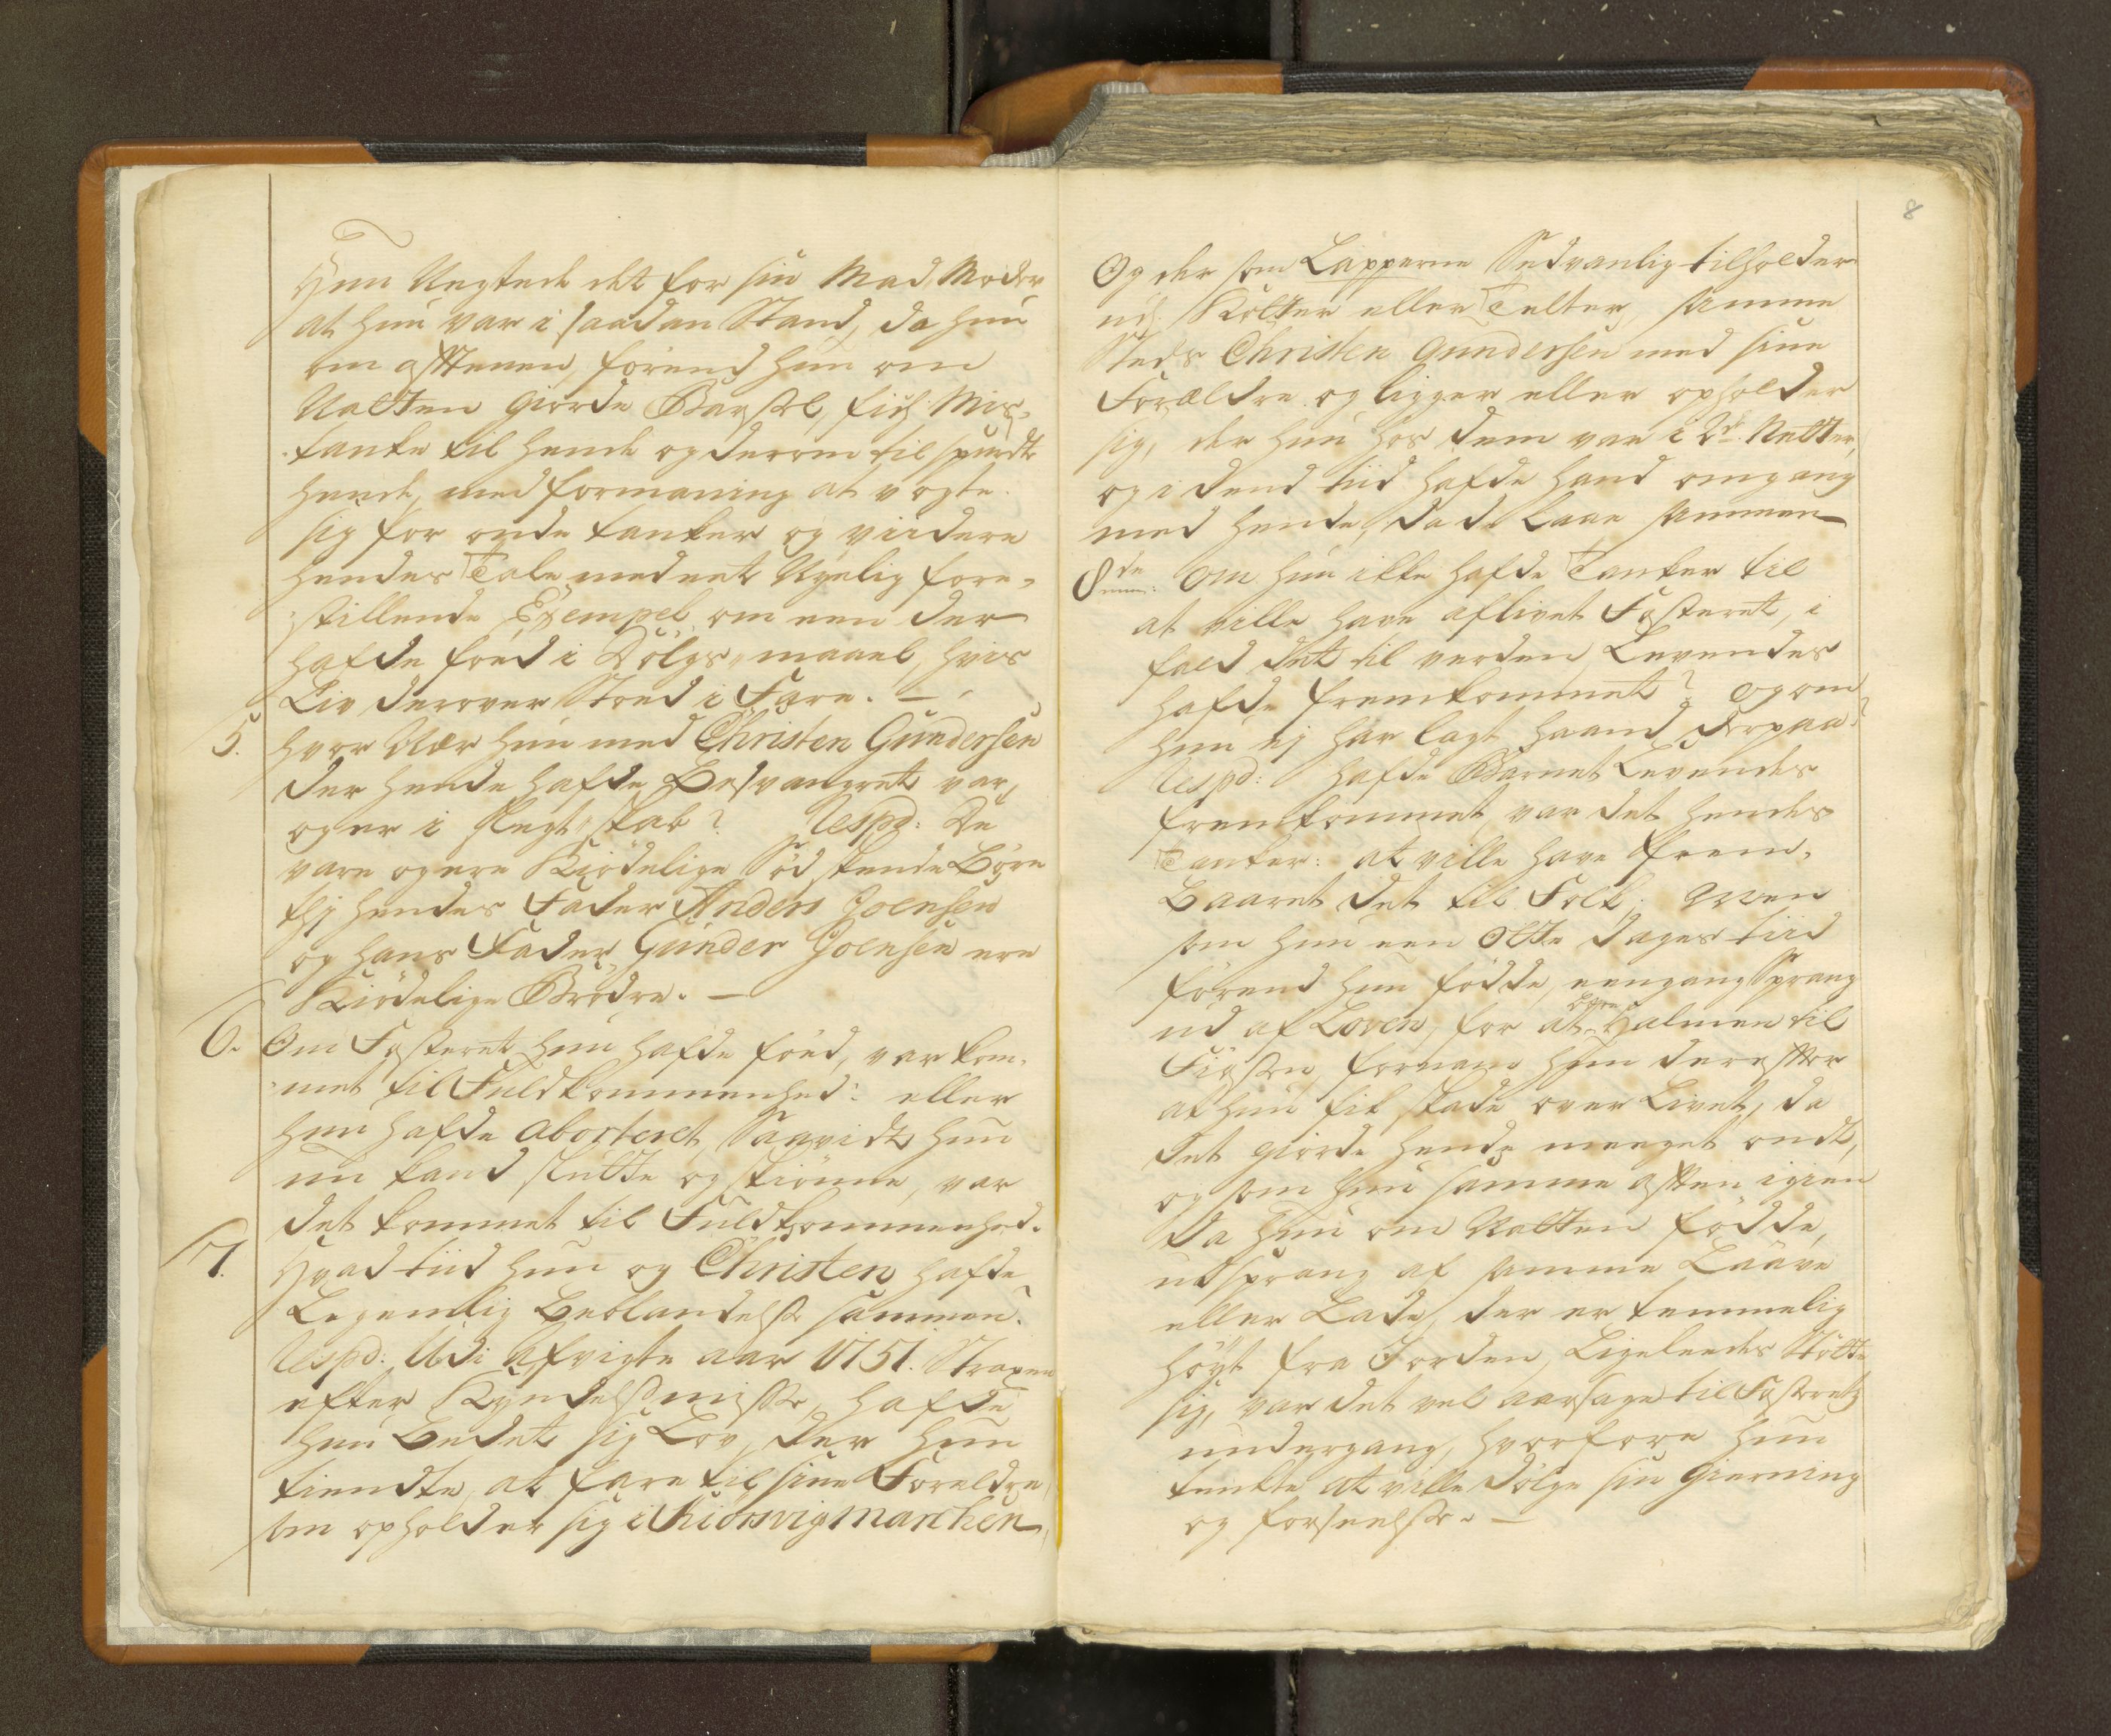 Hun Negtede det for sin Mad Moder
at hun var i saadan Stand, da hun
om afftenen, förend hun om
Natten giorde Barsel, fich Mis-
tanke til hende og derom tilspurdte
hende, med formaning at vogte
sig for onde tanker og viidere
hendes Tale med eet Nyelig fore-
stillende Exempel om een der
hafde föed i Dölgs-maael, hvis
Liv derover Stoed i Fare. —
5. hvor Nær hun med Christen Gundersen
der hende hafde Besvangret var,
og er i Slegt-skab? Resp.d: De
vare og ere Kiödelige Södskende Börn
thj hendes Fader Anders Joensen
og hans Fader Gunder Joensen ere
Kiödelige Brödre. —
6. Om Fosteret hun hafde föed, var kom-
met til Fuldkommenhed: eller
hun hafde aborteret, Saavidt hun
nu kand slutte og skiönne, var
det kommet til Fuldkommenhed.
7. Hvad tiid hun og Christen hafde
Legemlig Beblandelse sammen?
Resp.d: Udi Afvigte aar 1751. Straxen
efter Kyndelsmisse, hafde
hun Bedet sig Lov, der hun
tiendte, at fare til sine Foreldre
som opholder sig i Kiörsvigmarchen
8
Og der som Lapperne Sedvanlig tilholder
Kolter eller Telter, samme
Steds Christen Gundersen med sine
Forældre og ligger eller opholder
sig, der hun hos dem var i 2de Netter,
og i dend tiid hafde hand omgang
med hende, da de laae sammen
8de Om hun ikke hafde Tanker til
at ville have aflivet Fosteret, i
fald det til verden Levendes
hafde fremkommet? og om
hun ej har lagt haand derpaa?
Resp.d: hafde Barnet Levendes
fremkommet, var det hendes
Tanker: at ville have frem-
Baaret det til Folk; Men
som hun een Otte dages tiid
förend hun födde, eengang Sprang
ud af Loven, for at bære Halmen til
Fiøsen, fornam hun derefter
at hun fik skade over Livet, da
det giorde hende meeget ondt,
og som hun samme afften igien
da hun om Natten födde,
udsprang af samme Laave
eller Lade, der er temmelig
höyt fra Jorden, Ligeleedes Stötte
sig, var det vel aarsage til Fosterets
undergang, hvorfore hun
tenkte at ville dölge sin Gierning
og forseelse. —